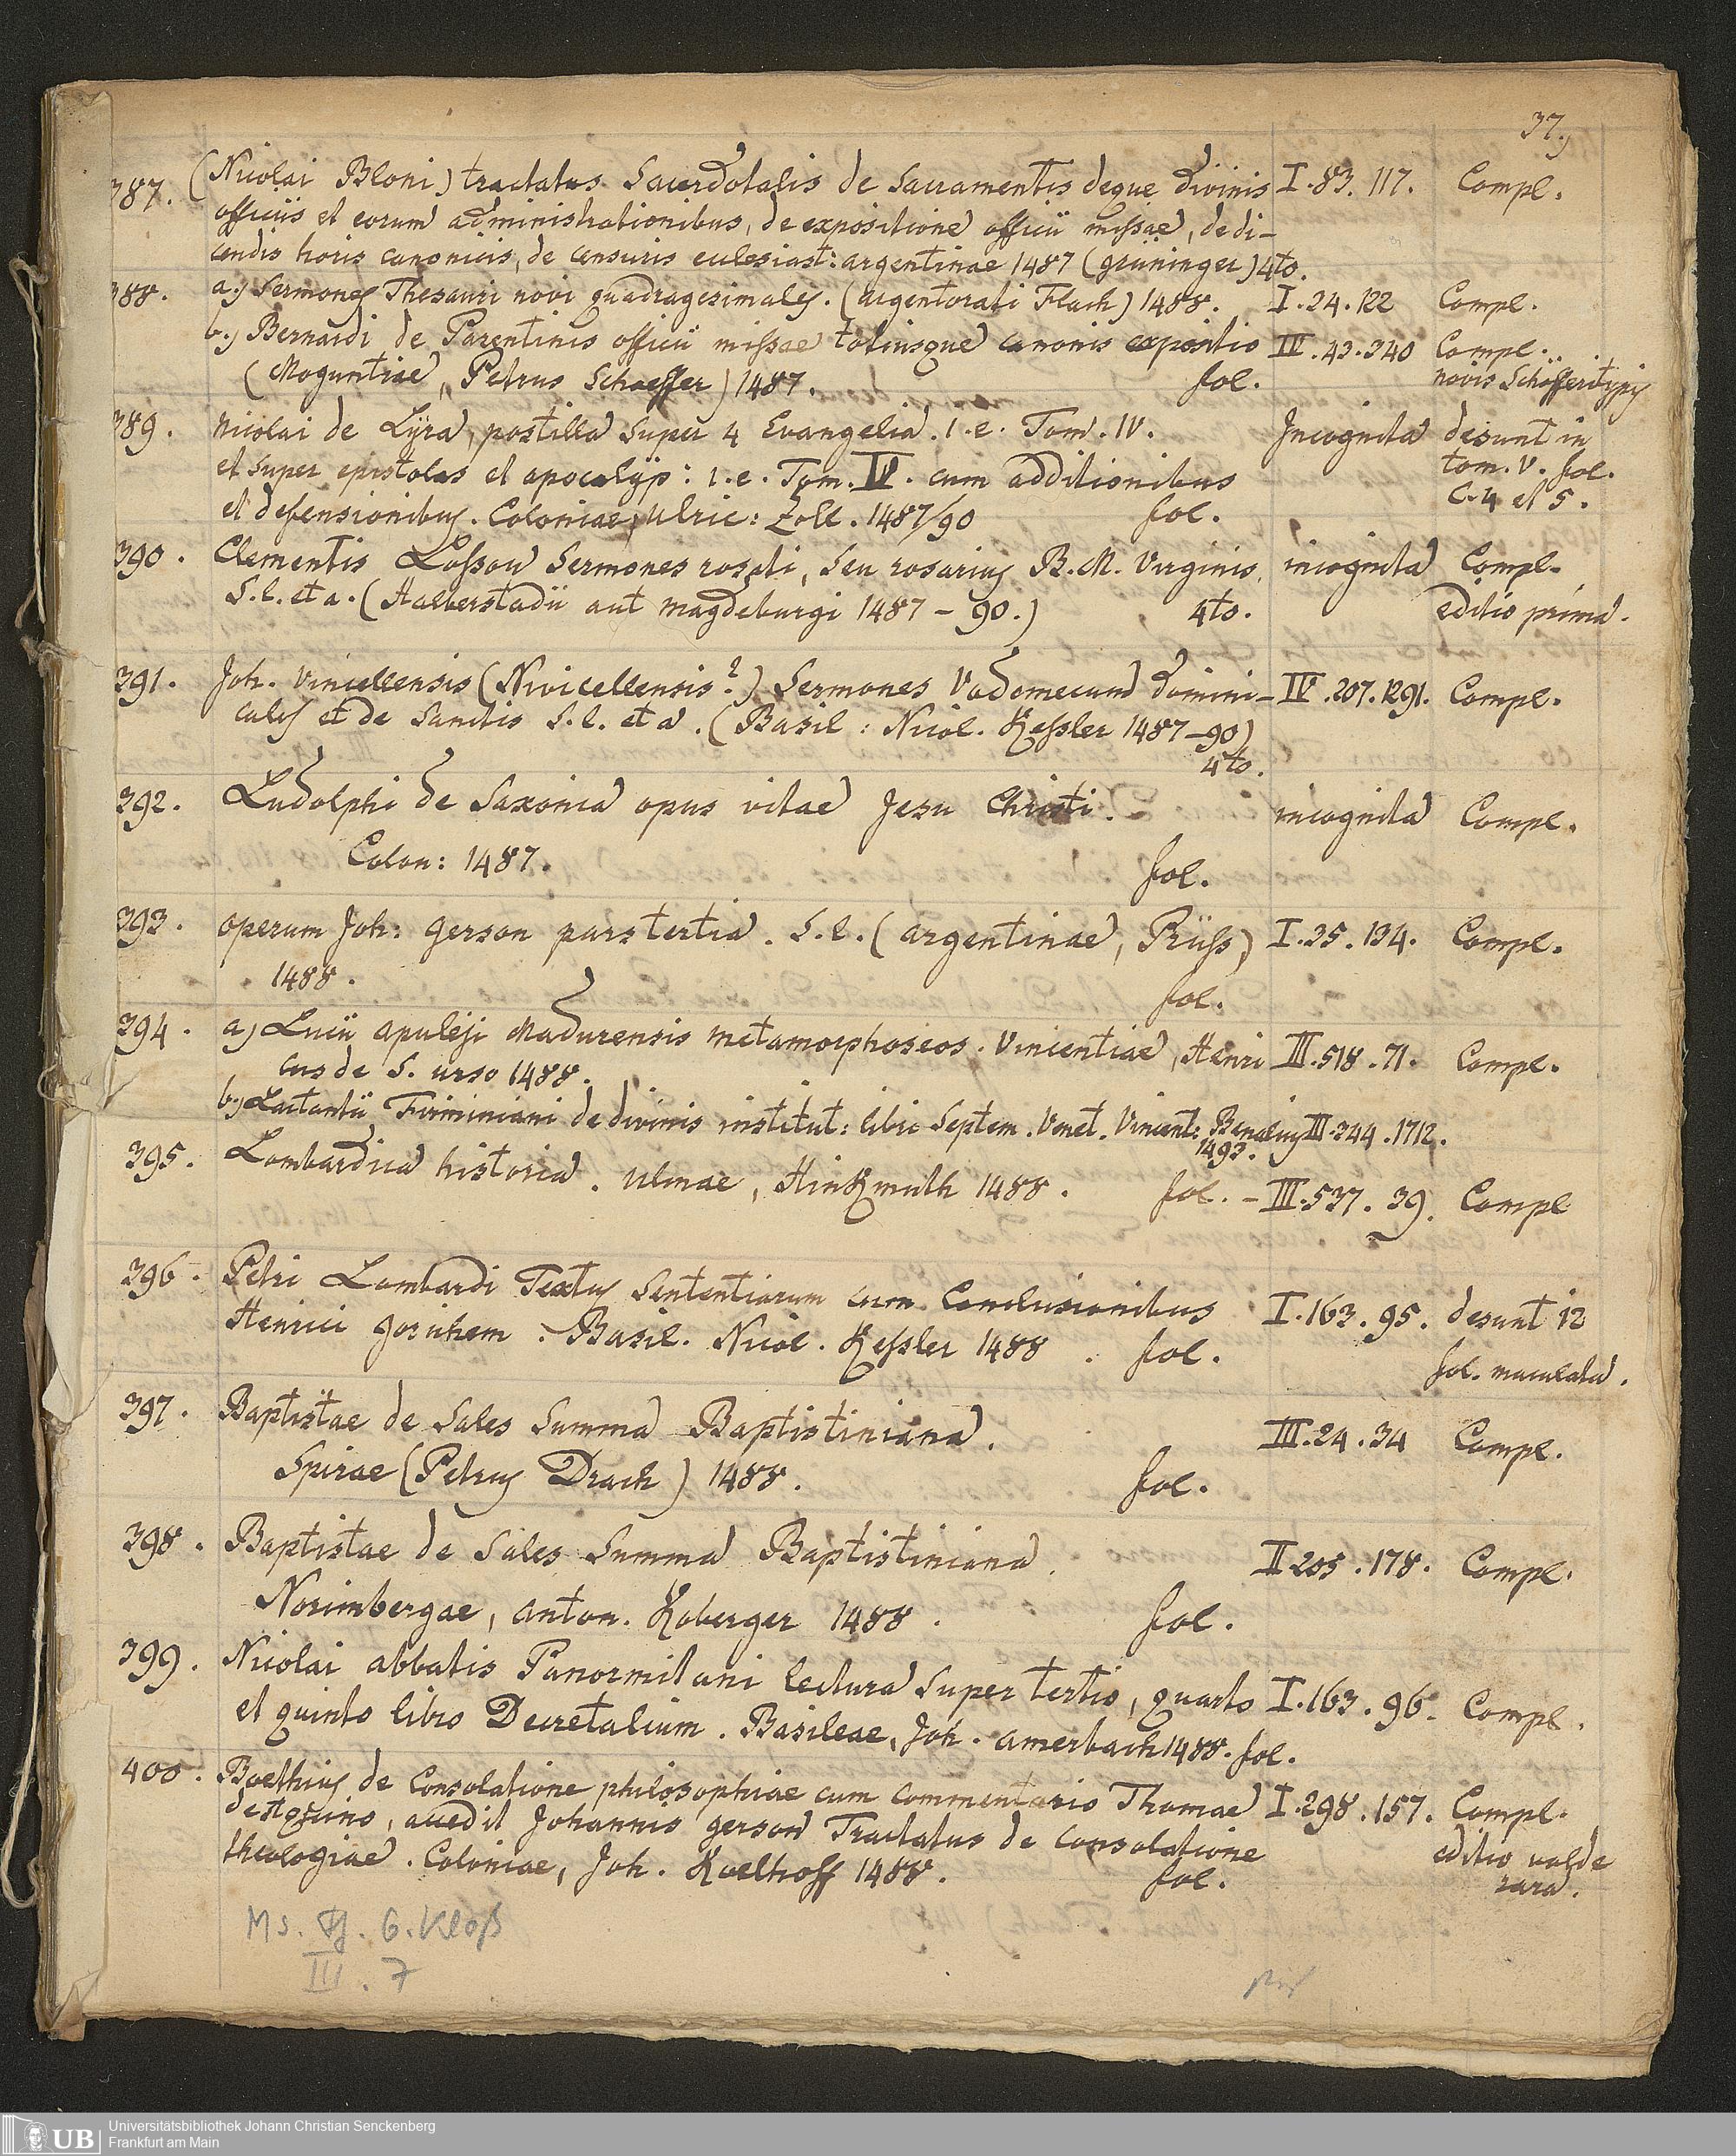 37.,
387. (Nicolai Bloni) tractatus Sacerdotalis de Sacramentis deque divinis I. 83. 117. Compl.
officiis et eorum administrationibus, de expositione officii missae, de di-
cendis horis canonicis, de censuris ecclesiast: argentinae 1487 (grüninger) 4to.
388. a.) Sermones Thesauri novi quadragesimales. (argentorati Flach) 1488. I. 24. 122 Compl.
b.) Bernardi de Parentinis officii missae totiusque canonis expositio IV. 43. 340 Compl..
(Moguntiae, Petrus Schoeffer) 1487. fol. novis Schöfferi typis
389. Nicolai de Lyra, postilla super 4 Evangelia. i.e. Tom. IV. Incognita desunt in
et super epistolas et apocalyp: i.e. Tom. IV. cum additionibus tom. V. fol.
et defensionibus. Coloniae, Ulric: Zell. 1487/90 fol. C. 4 et 5.
390. Clementis Lossow Sermones rosati, seu rosarius B. M. Virginis, incognita Compl.
S. l. et a. (Halberstadii aut magdeburgi 1487 – 90.) 4to. editio prima.
391. Joh. Vincellensis (Nivicellensis?) Sermones Vademecum domini- IV. 207. 1291. Compl.
cales et de Sanctis S. l. et a. (Basil: Nicol. Kessler 1487–90)
4to.
392. Ludolphi de Saxonia opus vitae Jesu Christi. incognita Compl.
Colon: 1487. fol.
393. operum Joh: Gerson pars tertia. S. l. (argentinae, Prüss) I. 35. 134. Compl.
1488. fol.
394. a) Lucii apuleji Madurensis metamorphoseos. Vincentiae, Henri III. 518. 71. Compl.
cus de S. urso 1488.
b.) Lactantii Firminiani de divinis institut: libri Septem. Venet. Vincent: Benalius III. 344. 1712.
1493.
395. Lombardica historia. Ulmae, Hinkmuth 1488. fol. – III. 537. 39. Compl
396. Petri Lombardi Textus Sententiarum cum Conclusionibus I. 163. 95. desunt 12
Henrici gorichem. Basil. Nicol. Kessler 1488. fol. fol. maculata.
397. Baptistae de Sales Summa Baptistiniana. III. 24. 34 Compl.
Spirae (Petrus Drach) 1488. fol.
398. Baptistae de Sales Summa Baptistiniana. II 205. 178. Compl.
Norimbergae, anton. Koberger 1488. fol.
399. Nicolai abbatis Panormitani lectura super tertio, quarto I. 163. 96. Compl.
et quinto libro Decretalium. Basileae, Joh. amerbach 1488. fol.
400. Boethius de Consolatione philosophiae cum Commentario Thomae I. 298. 157. Compl.
de Aquino, accedit Johannis gerson Tractatus de Consolatione editio valde
theologiae. Coloniae, Joh. Koelhoff 1488. fol. rara.
Ms. Ff. G. Kloß
III. 7
UB Universitätsbibliothek Johann Christian Senckenberg
Frankfurt am Main